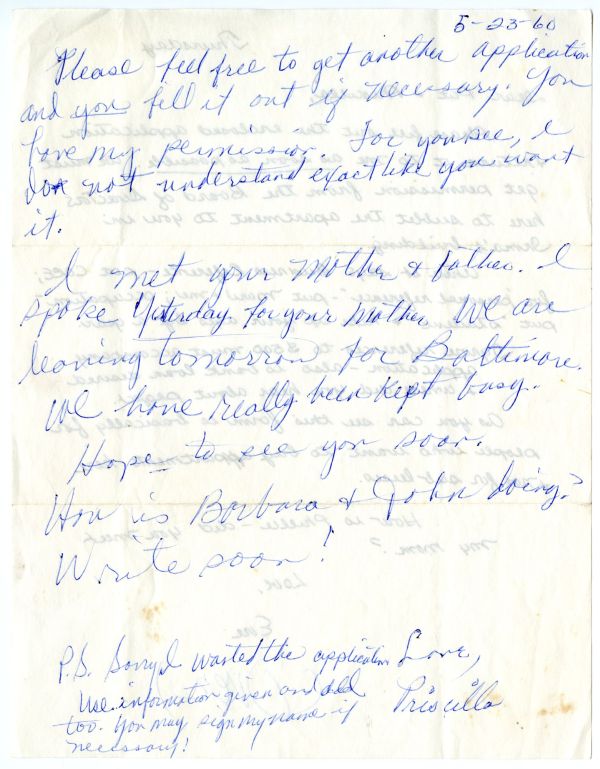 5-23-60
Please feel free to get another application
and you fill it out if necessary. You
have my permission. For you see, I
do not understand exact like you want
it.
I met your Mother & father. I
spoke Yesterday for your Mother. We are
leaving tomorrow for Baltimore.
We have really been kept busy.
Hope to see you soon.
How is Barbara & John doing?
Write soon!
Love,
Priscilla
P.S. Sorry I wasted the application
Use information given and add
too. You may sign my name if
necessary!